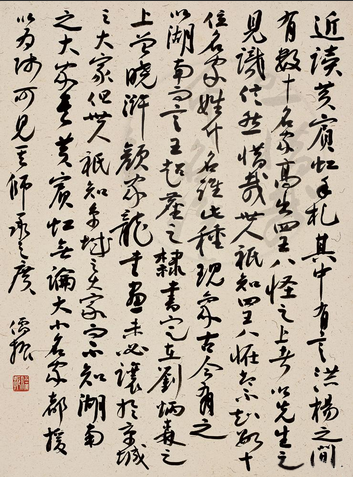 近读黄宾虹手札其中有言洪杨之间
有数十名家高出四王八怪之上者以先生之
见识信然惜哉世人祇知四王八怪却不知数十
位名家姓什名谁此种现象古今有之
以湖南而言王超尘之隶书定在刘炳森之
上
颜家龙书画未必让于京城
之大家但世人祇知京城之大家而不知湖南
之大家也黄宾虹无论大小名家都援
以为师可见其师承之广